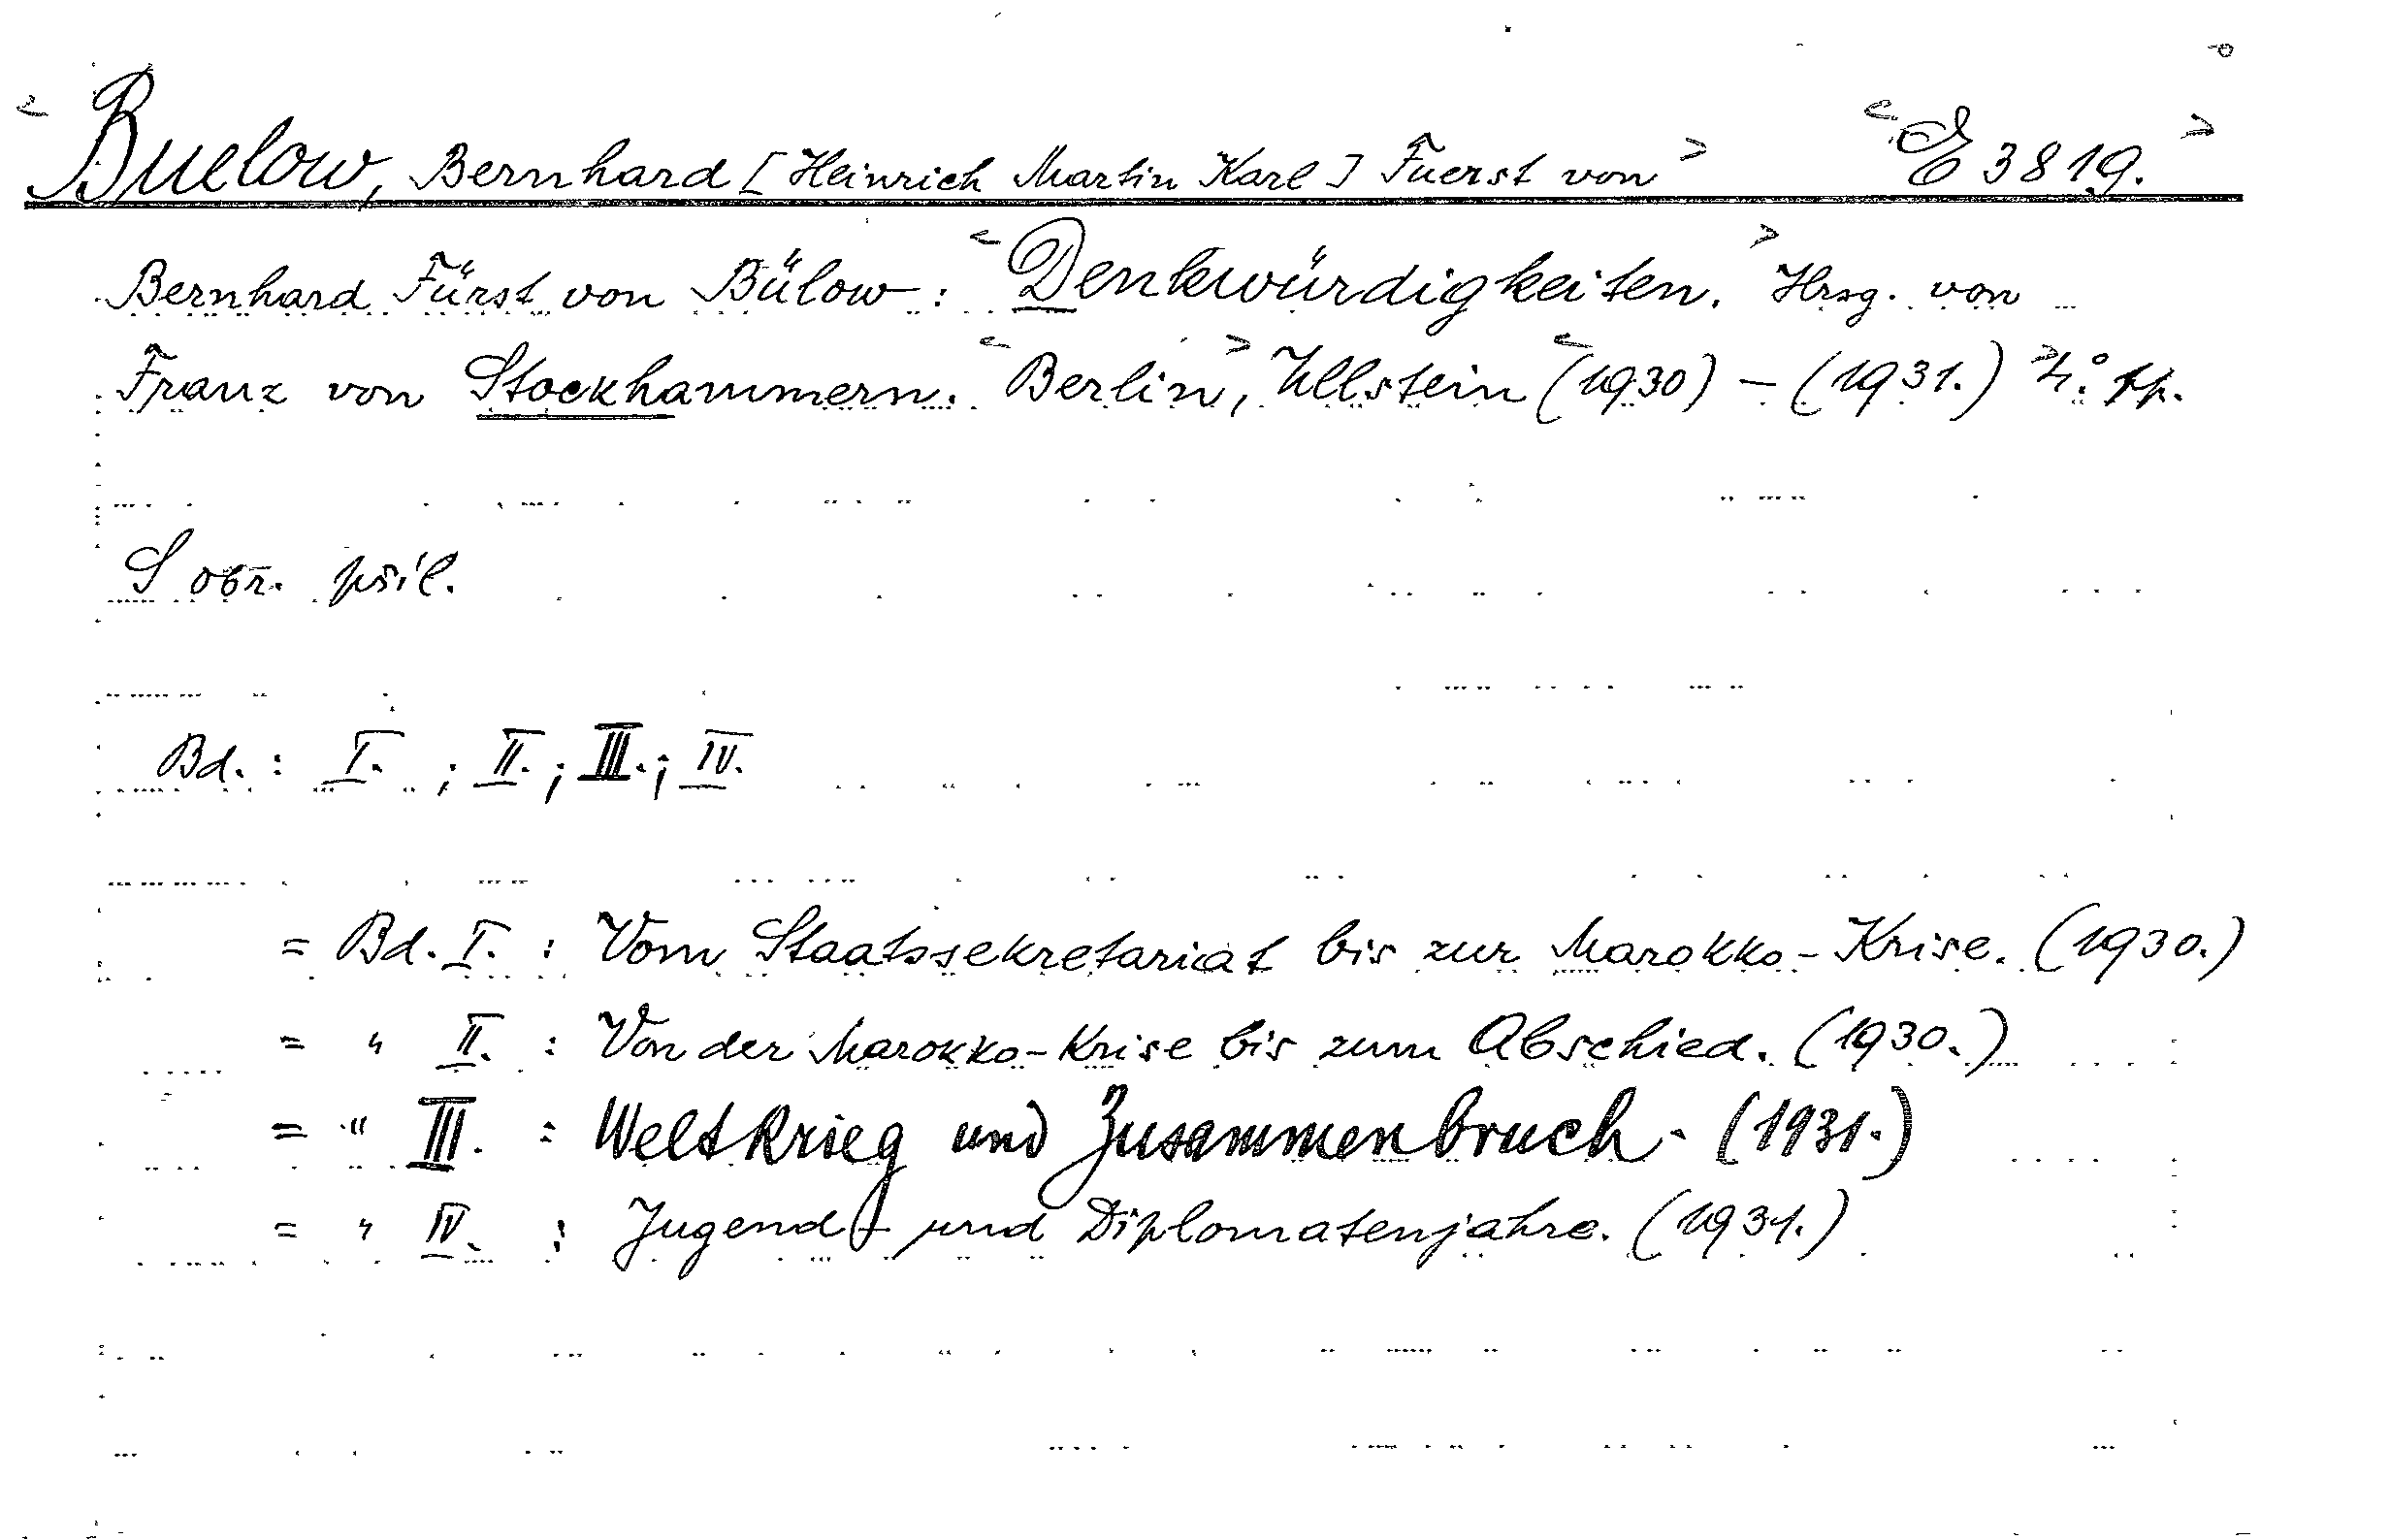 Buelow, Bernhard [Heinrich Martin Karl] Fuerst von E 3819.
Bernhard Fürst von Bülow: Denkwürdigkeiten. Hrsg. von
Franz von Stockhammern. Berlin, Ullstein (1930) – (1931.)
S obr. příl.
Bd.: I. ; II. ; III. ; IV.
= Bd. I. : Vom Staatssekretariat bis zur Marokko-Krise. (1930.)
= " II. : Von der Marokko-Krise bis zum Abschied. (1930.)
= " III. : Weltkrieg und Zusammenbruch. (1931.)
= " IV. : Jugend- und Diplomatenjahre. (1931.)